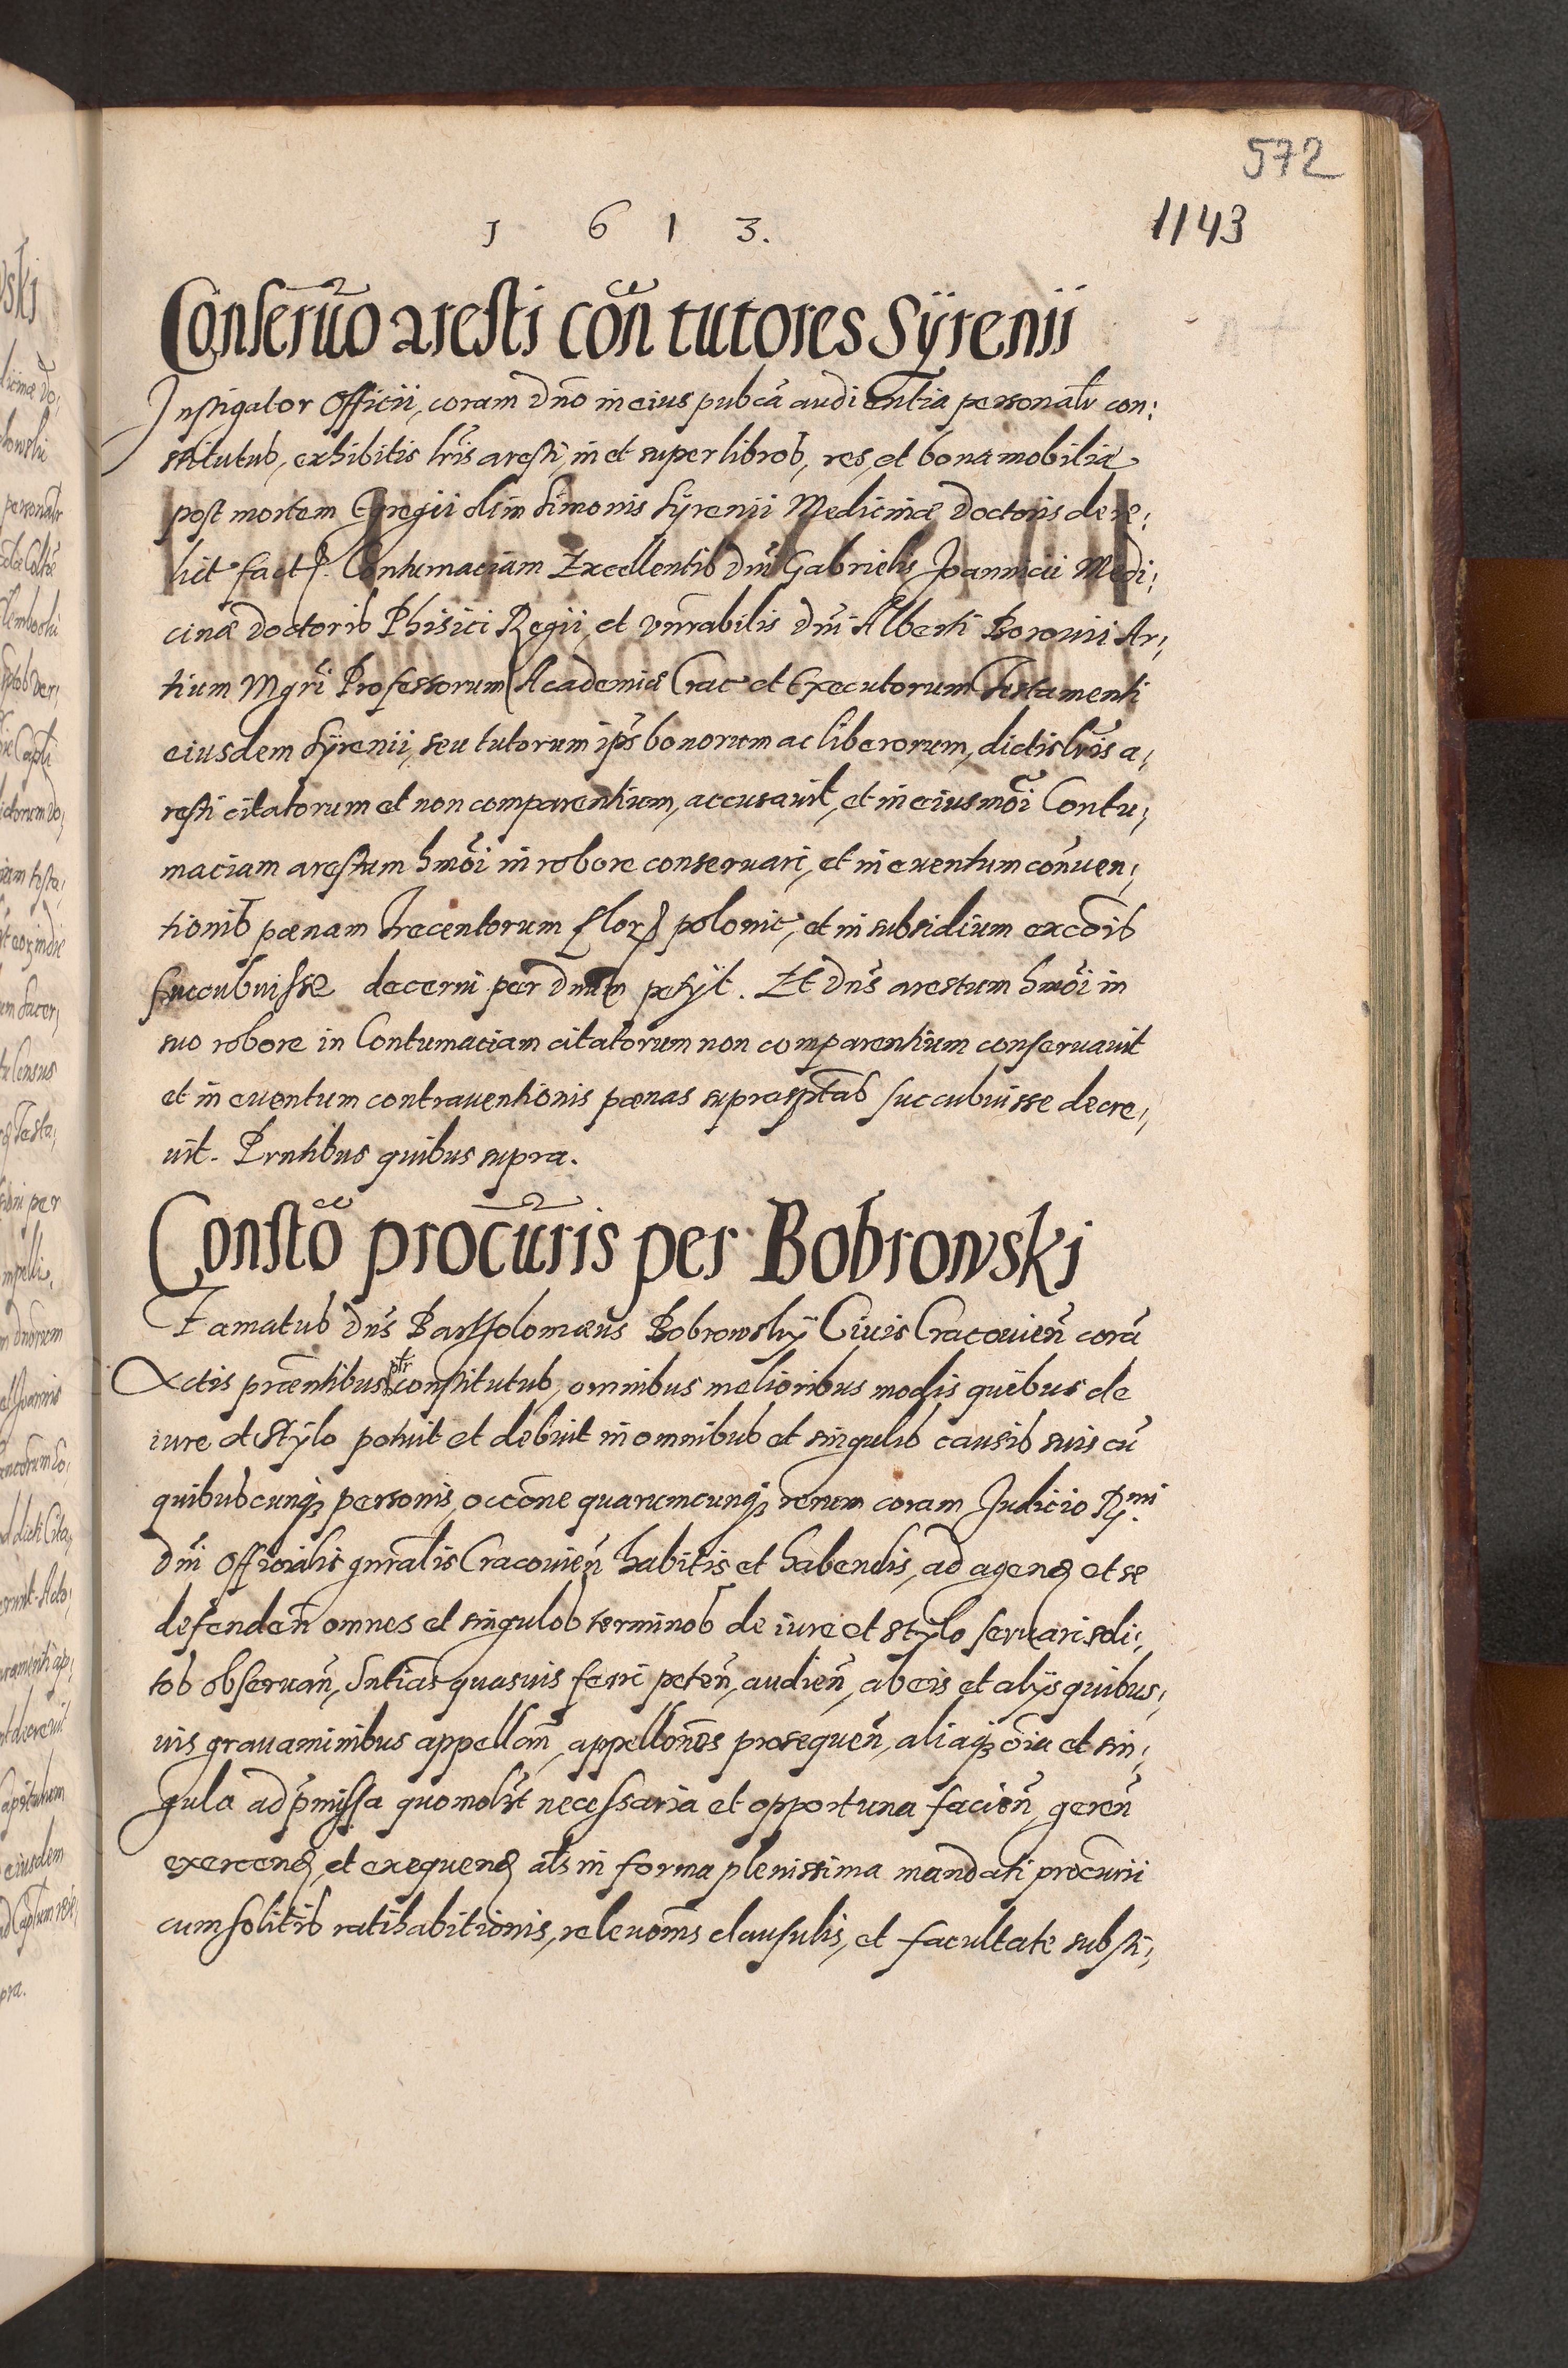 572
1143
1 6 1 3.
Conseruo aresti cõn tutores Sÿrenii
Instigator Officii, coram Dño in eius pubcã audientia personałr con:
stitutus, exhibitis lris aresti, in et super libros, res, et bona mobilia
post mortem Egregii olim Simonis Sÿrenii Medicinæ Doctoris dere:
lict fact. Contumaciam Excellentis Dñi Gabrielis Joannicii Medi:
cinæ Doctoris Phisici Regii, et Vnrabilis Dñi Alberti Borowii Ar:
tium Mgri Professorum Academiæ Crac et Executorum Testamenti
eiusdem Sÿrenii, seu tutorum ips bonorum ac liberorum, dictis lris a:
resti citatorum et non comparentium, accusauit, et in eiusmõi Contu:
maciam arestum hmõi in robore conseruari, et in euentum cõnuen:
tionis pœnam Trecentorum flor polonic, et in subsidium excõis
succubuisse decerni per Dnum petÿt. Et Dñs arestum hmõi in
suo robore in Contumaciam citatorum non comparentium conseruauit
et in euentum contrauentionis pœnas suprasptas succubuisse decre:
uit. Prntibus quibus supra.
Constõ procuris per Bobrowski
Famatus Dñs Bartholomæus Bobrowskÿ Ciuis Cracouien̄ corã
Actis præntibus ptr constitutus, omnibus melioribus modis quibus de
iure et stÿlo potuit et debuit in omnibus et singulis causis suis cũ
quibuscunq personis, occõne quarumcunq rerum coram Judicio R.mi
Dñi Officialis gnralis Cracouien̄ habitis et habendis, ad agend et se
defenden̄ omnes et singulos terminos de iure et stÿlo seruari soli:
tos obseruan̄, Sntias quasuis ferri peten̄, audien̄, ab eis et alÿs quibus:
uis grauaminibus appellan̄, appellões prosequen̄, aliaq õia et sin:
gula ad p̃missa quomolƀt necessaria et opportuna facien̄, geren̄
exercend, et exequend als in forma plenissima mandati procurii
cum solitis ratihabitionis, releuõnis clausulis, et facultate substi: